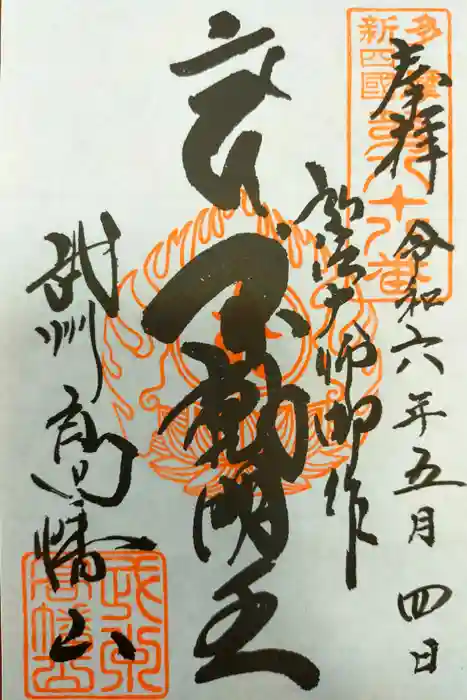 奉拝
令和六年五月四日
多摩
新四國
第八十八番
弘法大師御作
不動明王
武州
高幡山
武州
高幡山